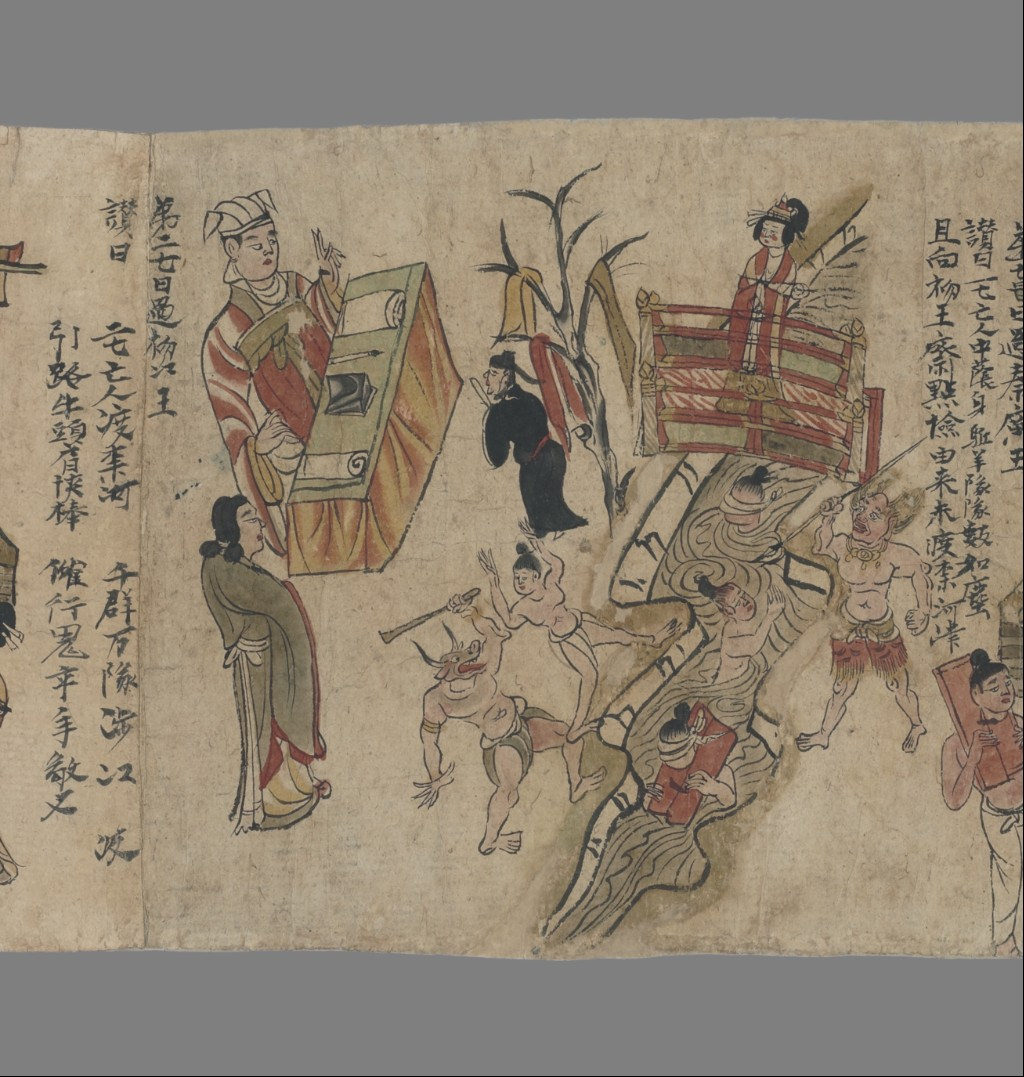 第一七日過秦廣王
讃曰一七亡人中陰身駈羊隊隊數如塵
且向初王齋檢點由来未渡柰河津
第二七日過初江王
讃曰
二七亡人渡柰河 千群万隊涉江波
引路牛頭肩挾棒 催行鬼卒手敧叉